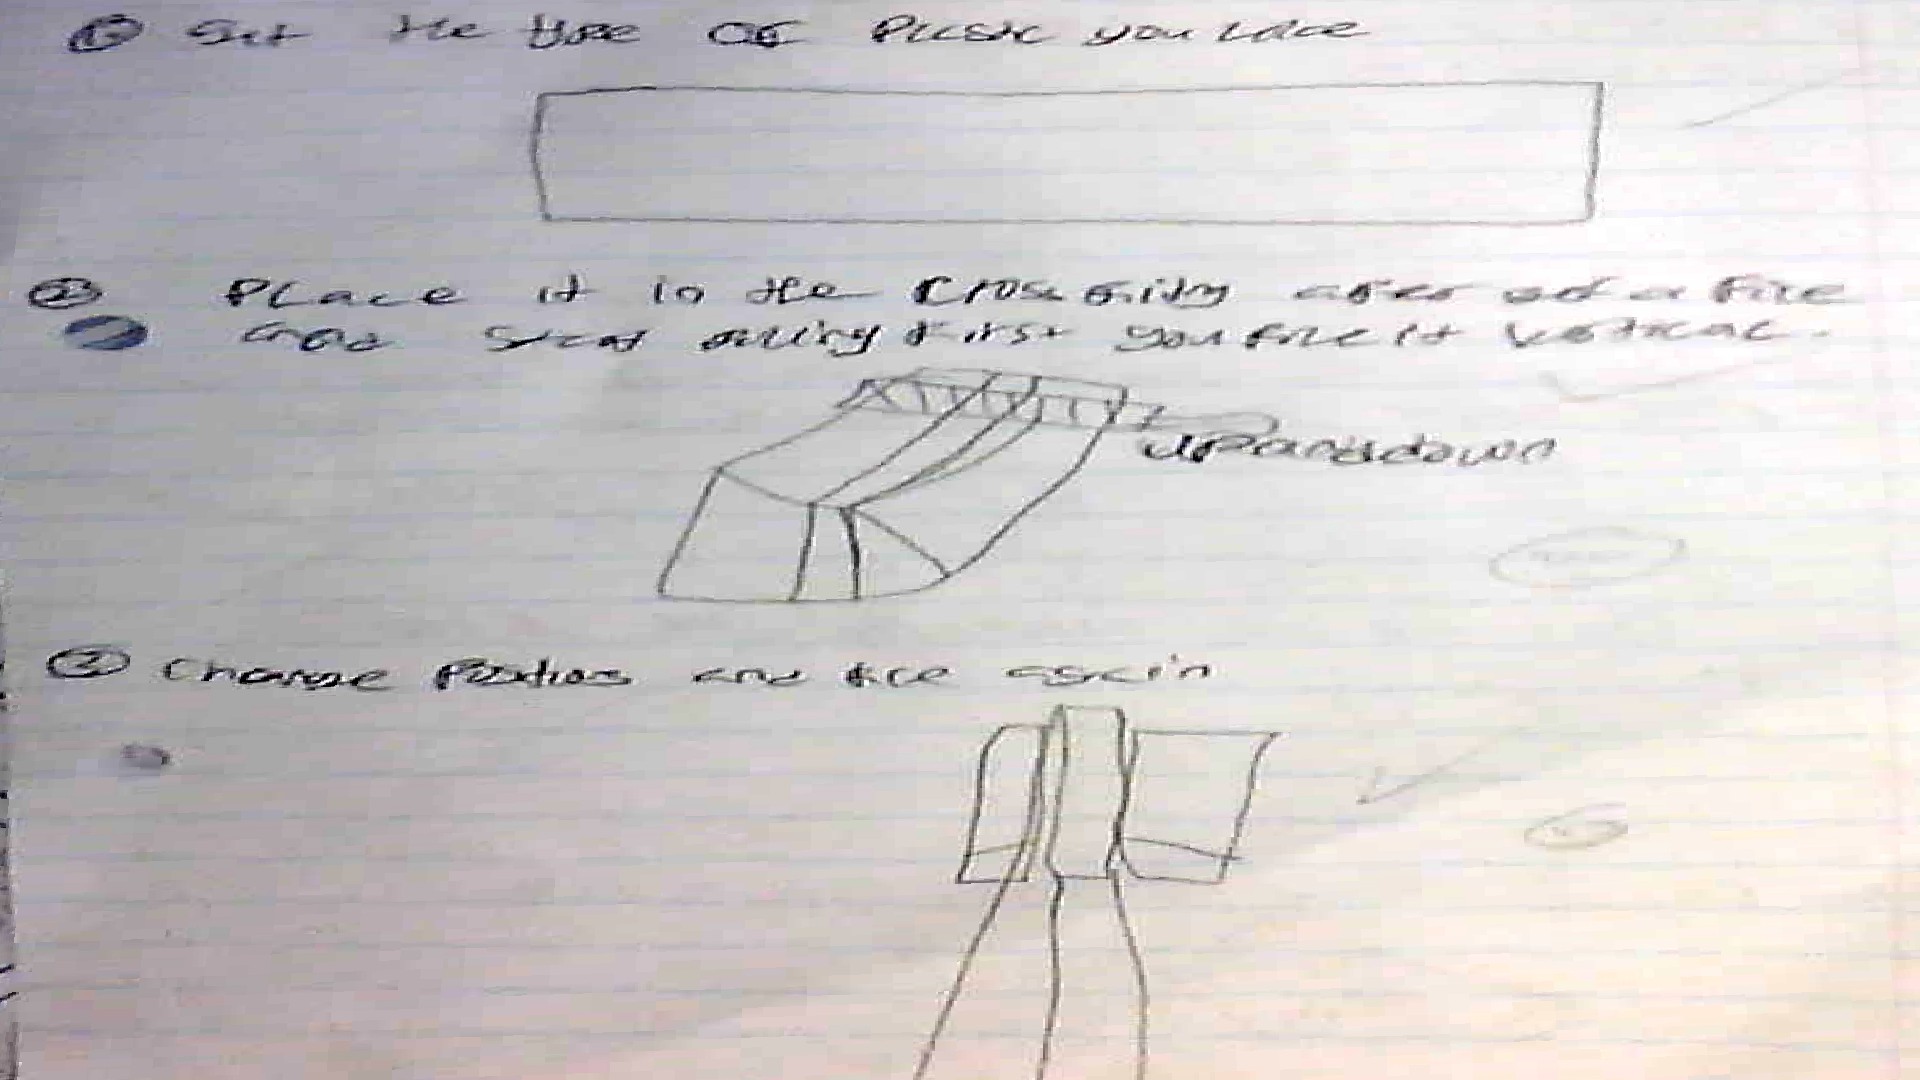 ① Get the type OF Plastic you like
② Place it in the Cross Grity after get a File
and Start filing first you file it vertical.
upandsdown
③ Change Position and file again